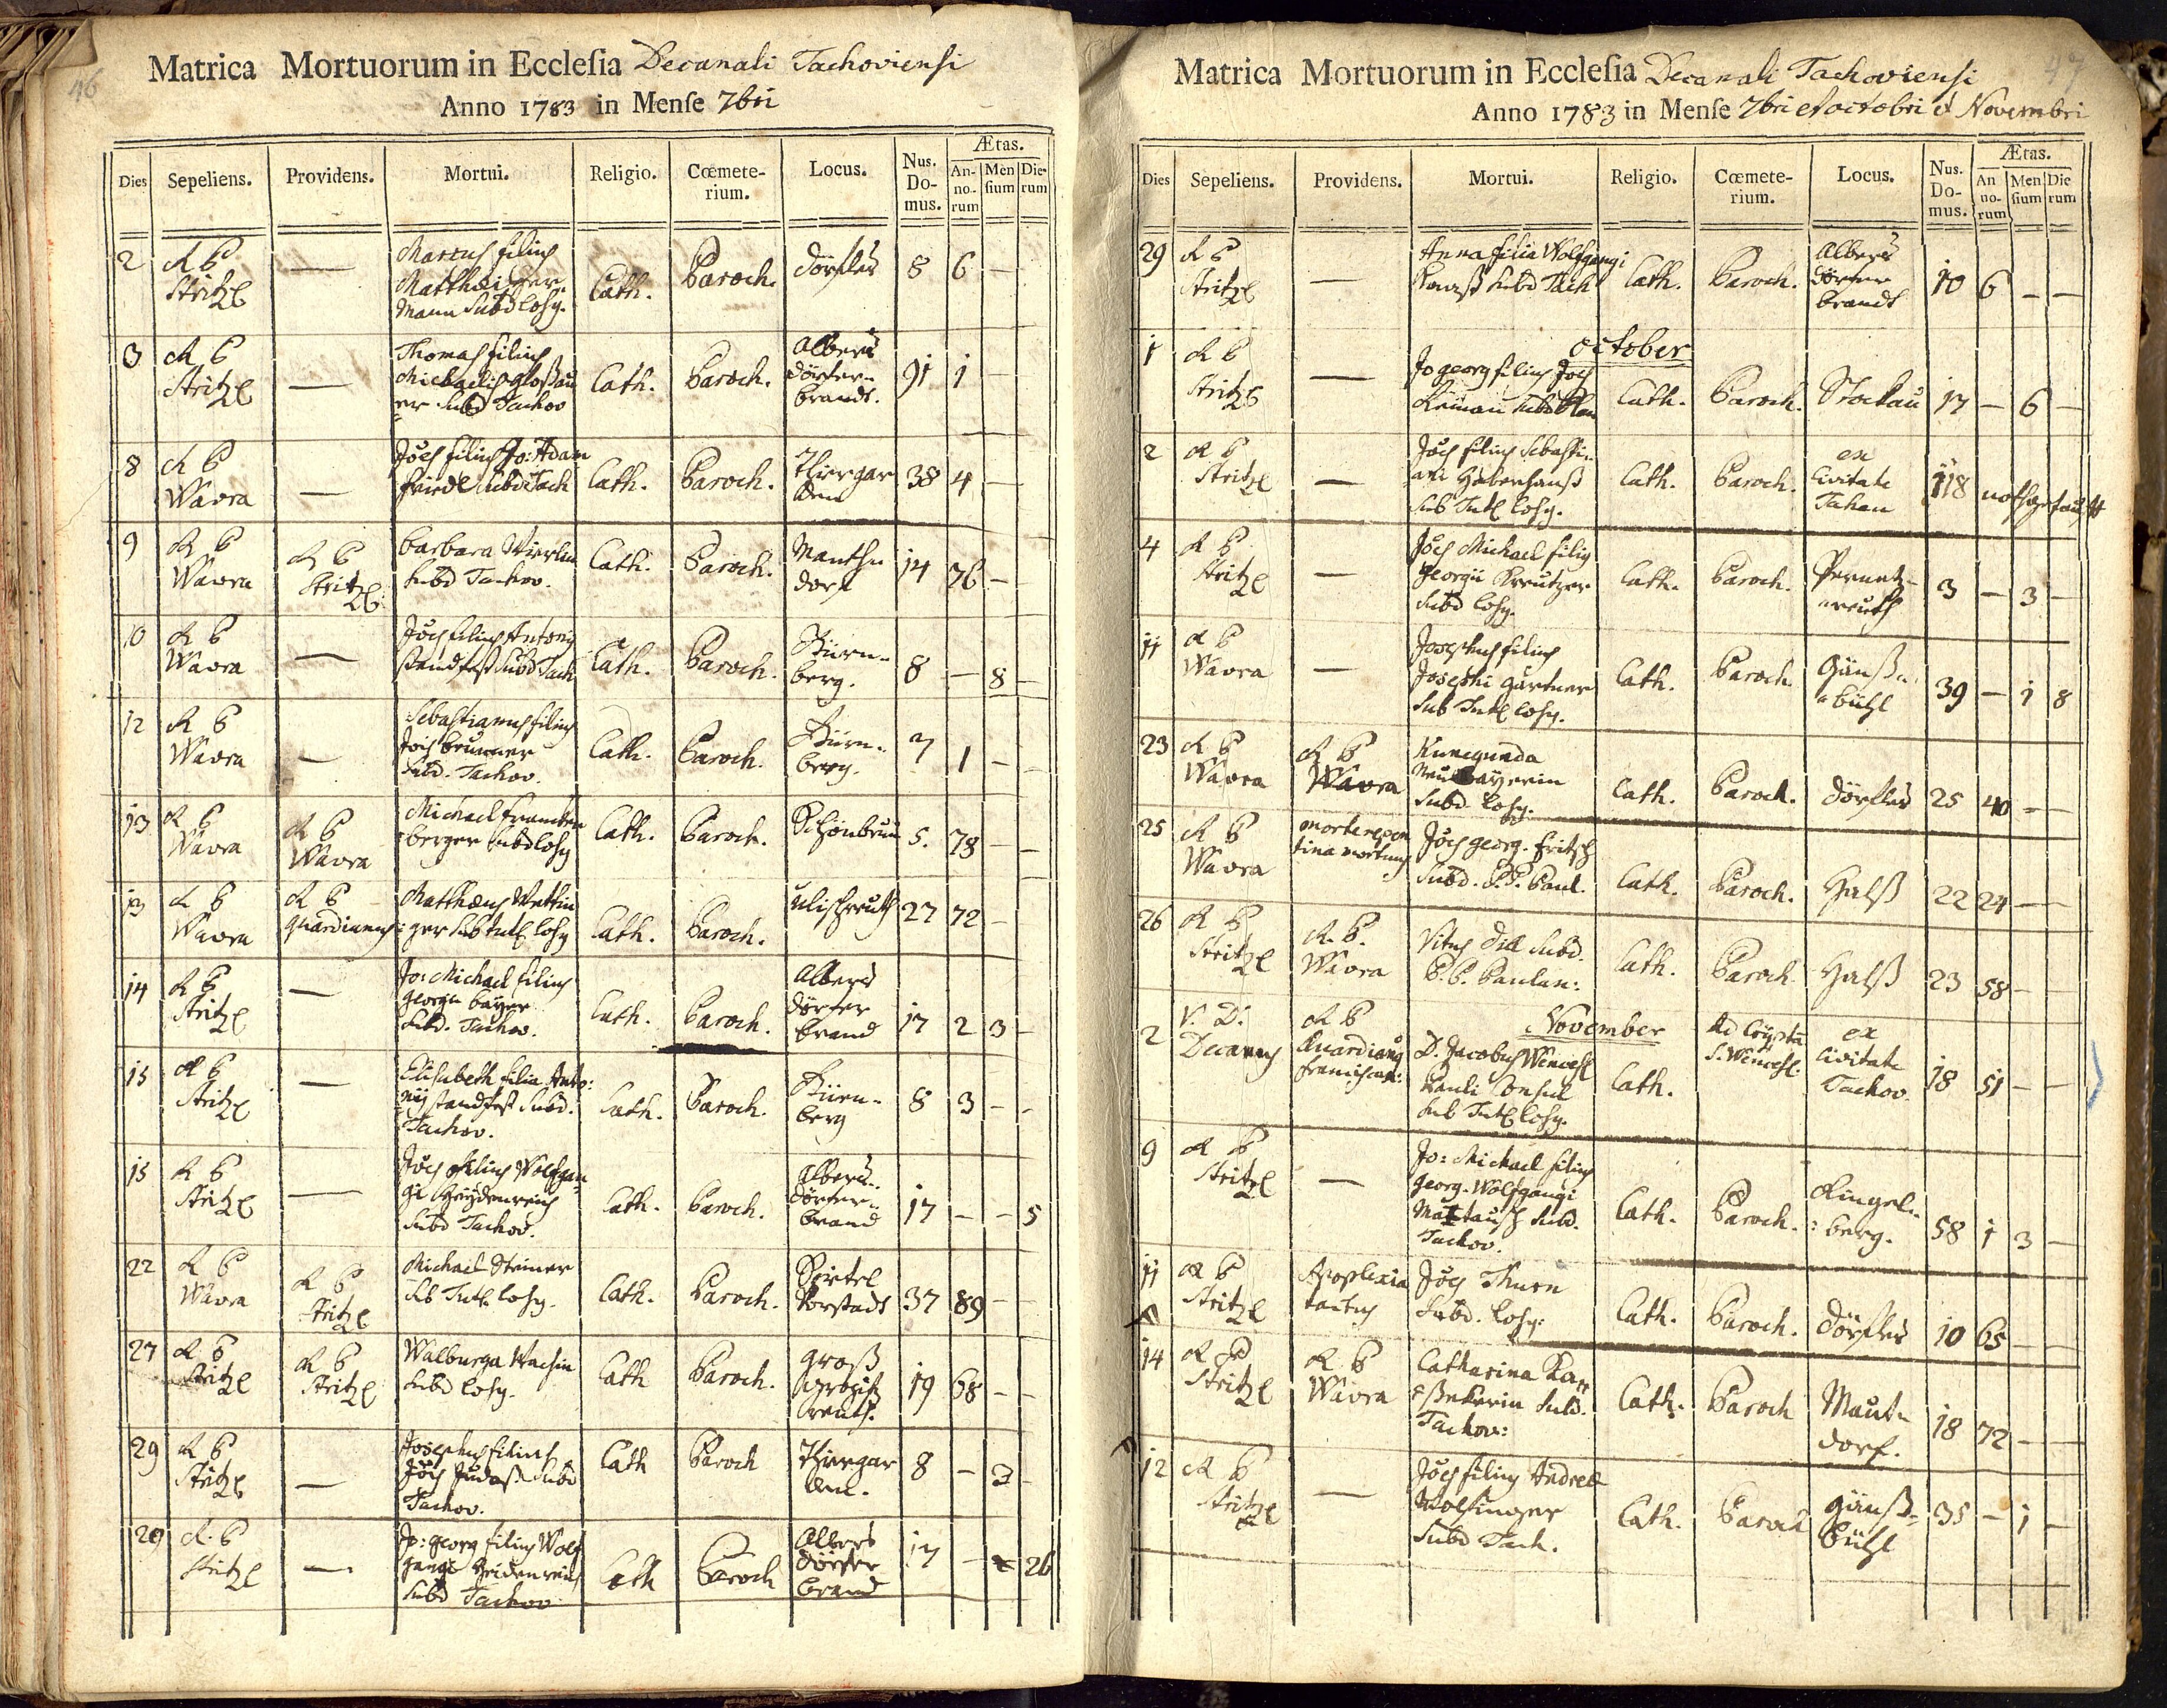 46
Matrica Mortuorum in Ecclesia Decanali Tachoviensi
Anno 1783 in Mense 7bri
Dies Sepeliens. Providens. Mortui. Religio. Cœmete-rium. Locus. Nus. Do-mus. Ætas. An-no-rum Men sium Die-rum
2 R P Stritzl — Marcus filius
Matthæi Subd Cosy. Cath. Paroch. Dörfles 8 6 —
3 R P Stritzl — Thomas filius
Michaelis gloßau
er Subd Tachov Cath. Paroch. Albers
dörfer-
brandt. 91 1 —
8 R P Wavra — Joes filius Jo: Adam
friedl Subd Tach Cath. Paroch. Thiergar
ten 38 4 —
9 R P Wavra R P Stritzl Barbara
Subd Tachov. Cath. Paroch. Mauthn
dorf 14 76 —
10 R P Wavra — Joes filius Antony
standfest Subd Tach Cath. Paroch. Thürn-
berg. 8 — 8 —
12 R P Wavra — Sebastianus filius
Jois brunner
Subd. Tachov. Cath. Paroch. Thürn-
berg. 7 1 — —
13 R P Wavra R P Wavra Michael
berger Subd Cosy Cath. Paroch. Schönbrun 5. 78 — —
13 R P Wavra R P guardianus Matthæus Wettin
ger Sub Tutl Cosy Cath. Paroch. ulischreuth 27 72 —
14 R P Stritzl — Jo: Michael filius
georgii bayer
Subd. Tachov. Cath. Paroch. Albers
dörfer
brand 17 2 3 —
15 R P Stritzl — Elisabeth filia Anto:
nij standfest Subd.
Tachov. Cath. Paroch. Thürn-
berg 8 3 — —
15 R P Stritzl — Joes filius Wolfgan
gi Heydenreich
Subd Tachov. Cath. Paroch. Albers
dörfer-
brand 17 — — 5
22 R P Wavra R P Stritzl Michael Steiner
Sub Tutl. Cosy. Cath. Paroch. Vorstadt 37 89 — —
27 R P Stritzl R P Stritzl Walburga
Subd Cosy. Cath Paroch. groß
reuth. 19 68 — —
29 R P Stritzl — Josephus filius
Jois Subd
Tachov. Cath Paroch Thiergar
ten. 8 — 3 —
29 R. P Stritzl — Jo: georg filius Wolf
gangi Heidenreich
Subd Tachov Cath Paroch Albers
dörfer
brand 17 — 26
47
Matrica Mortuorum in Ecclesia Decanali Tachoviensi
Anno 1783 in Mense 7bri et octobri et Novembri
Dies Sepeliens. Providens. Mortui. Religio. Cœmete-rium. Locus. Nus. Do-mus. Ætas. An no-rum Men sium Die rum
29 R P Stritzl — Anna filia Wolfgangi
Subd Tach Cath. Paroch. Albers
dörfer
brandt 10 6 — —
October
1 R P Stritzl — Jo georg filius Jois
Subd Cath. Paroch. Stockau 17 — 6 —
2 R P Stritzl — Joes filius Sebasti-
ani Haberhanß
Sub Tutl Cosy. Cath. Paroch. ex
Civitate
Tachau 118 nothgetaufft
4 R P Stritzl — Joes Michael filius
georgii Kreutzer
Subd Cosy. Cath. Paroch. Pernetz-
reuth 3 — 3 —
11 R P Wavra — Josephus filius
Josephi gärtner
Sub Tutl Cosy. Cath. Paroch. Gänß-
bühl 39 — 1 8
23 R P Wavra R P Wavra Kunegunda
Subd. Cosy. Cath. Paroch. Dörfles 25 40 — —
25 R P Wavra morte repen
tina mortuus Joes georg. fritsch
Subd. P. P. Paul. Cath. Paroch. Halß 22 24 — —
26 R P Stritzl R. P. Wavra Vitus Subd.
P. P. Paulan: Cath. Paroch Halß 23 58 —
November
2 V. D. Decanus R P Quardianus
franciscan: D. Jacobus Wencesl
Pauli Consul
Sub Tutl Cosy. Cath. Ad Crypta
S. Wencesl. ex
Civitate
Tachov. 18 51 — —
9 R P Stritzl — Jo: Michael filius
georg. Wolfgangi
Mattausch Subd.
Tachov. Cath. Paroch. Ringel-
berg. 58 1 3 —
11 R P Stritzl Apoplexia
tactus Joes Thurn
Subd. Cosy: Cath. Paroch. Dörfles 10 65 — —
14 R P Stritzl R P Wavra Catharina
Subd.
Tachov: Cath. Paroch Maut-
dorf. 18 72 — —
12 R P Stritzl — Joes filius Andreæ
Wolfinger
Subd Tach. Cath. Paroch Gänß-
bühl 35 — 1 —